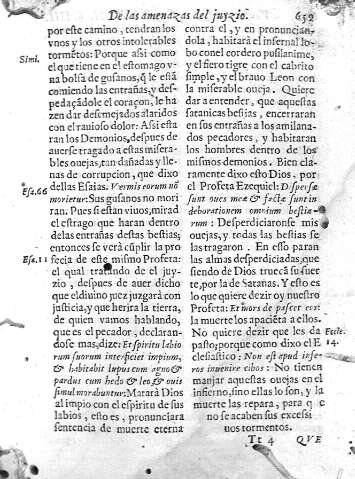 De las amenazas del juyzio. 652
por este camino, tendran los
vnos y los otros intolerables
Simi. tormẽtos: Porque assi como
el que tiene en el estomago v-
na bolsa de gusanos, q̃ le estã
comiendo las entrañas, y des-
pedaçãdole el coraçon, le ha-
zen dar desmejados alaridos
con el rauioso dolor: Assi esta
ran los Demonios, despues de
auerse tragado a estas misera-
bles ouejas, tan dañadas y lle-
nas de corrupcion, que dixo
Esa. 66 dellas Esaias. Vermis eorum nõ
morietur: Sus gusanos no mori
ran. Pues si estãn viuos, mirad
el estrago que haran dentro
de las entrañas destas bestias;
entonces se verà cũplir la pro
Esa. 11 fecia de este mismo Profeta:
el qual tratando de el juy-
zio, despues de auer dicho
que el diuino juez juzgarà con
justicia, y que heriria la tierra,
de quien vamos hablando,
que es el pecador, declaran-
dose mas, dize: Et spiritu labio
rum suorum interficiet impium,
& habitabit lupus cum agno &
pardus cum hedo & leo & ouis
simul morabuntur: Matarà Dios
al impio con el espiritu de sus
labios, esto es, pronunciara
sentencia de muerte eterna
contra el, y en pronuncian-
dola, habitarà el infernal lo-
bo con el cordero pusilanime,
y el fiero tigre con el cabrito
simple, y el brauo Leon con
la miserable oueja. Quiere
dar a entender, que aquellas
satanicas bestias, encerraran
en sus entrañas a los amilana-
dos pecadores, y habitaran
los hombres dentro de los
mismos demonios. Bien cla-
ramente dixo esto Dios, por
el Profeta Ezequiel: Dispersæ
sunt oues meæ & factæ sunt in
deuorationem omnium bestia-
rum: Desperdiciaronse mis
ouejas, y todas las bestias se
las tragaron. En esso paran
las almas desperdiciadas, que
siendo de Dios truecã su suer
te, por la de Satanas. Y esto es
lo que quiere dezir oy nuestro
Profeta: Et mors depascet eos:
la muerte los apacièta a ellos.
No quiere dezir que les da Eccle.
pasto; porque como dixo el E 14.
clesiastico: Non est apud infe-
ros inuenire cibos: No tienen
manjar aquestas ouejas en el
infierno, sino ellas lo son, y la
muerte las repara, para q̃
no se acaben sus excessi
uos tormentos.
Tt 4 QVE